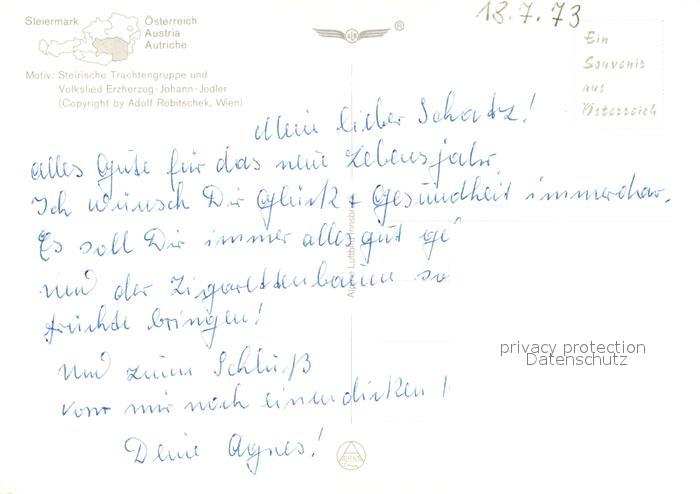 18.7.73
Steiermark
Österreich
Austria
Autriche
Motiv: Steirische Trachtengruppe und
Volkslied Erzherzog-Johann-Jodler
(Copyright by Adolf Robitschek, Wien)
Ein
Souvenir
aus
Österreich
Mein lieber Schatz!
Alles Gute für das neue Lebensjahr
Ich wünsch Dir Glück + Gesundheit immerdar.
Es soll Dir immer alles gut ge
und der Zigarettenbaum so
Früchte bringen!
Und zum Schluß
von mir noch einen dicken
Deine Agnes!
Alpine Luftbild Innsbr
privacy protection
Datenschutz